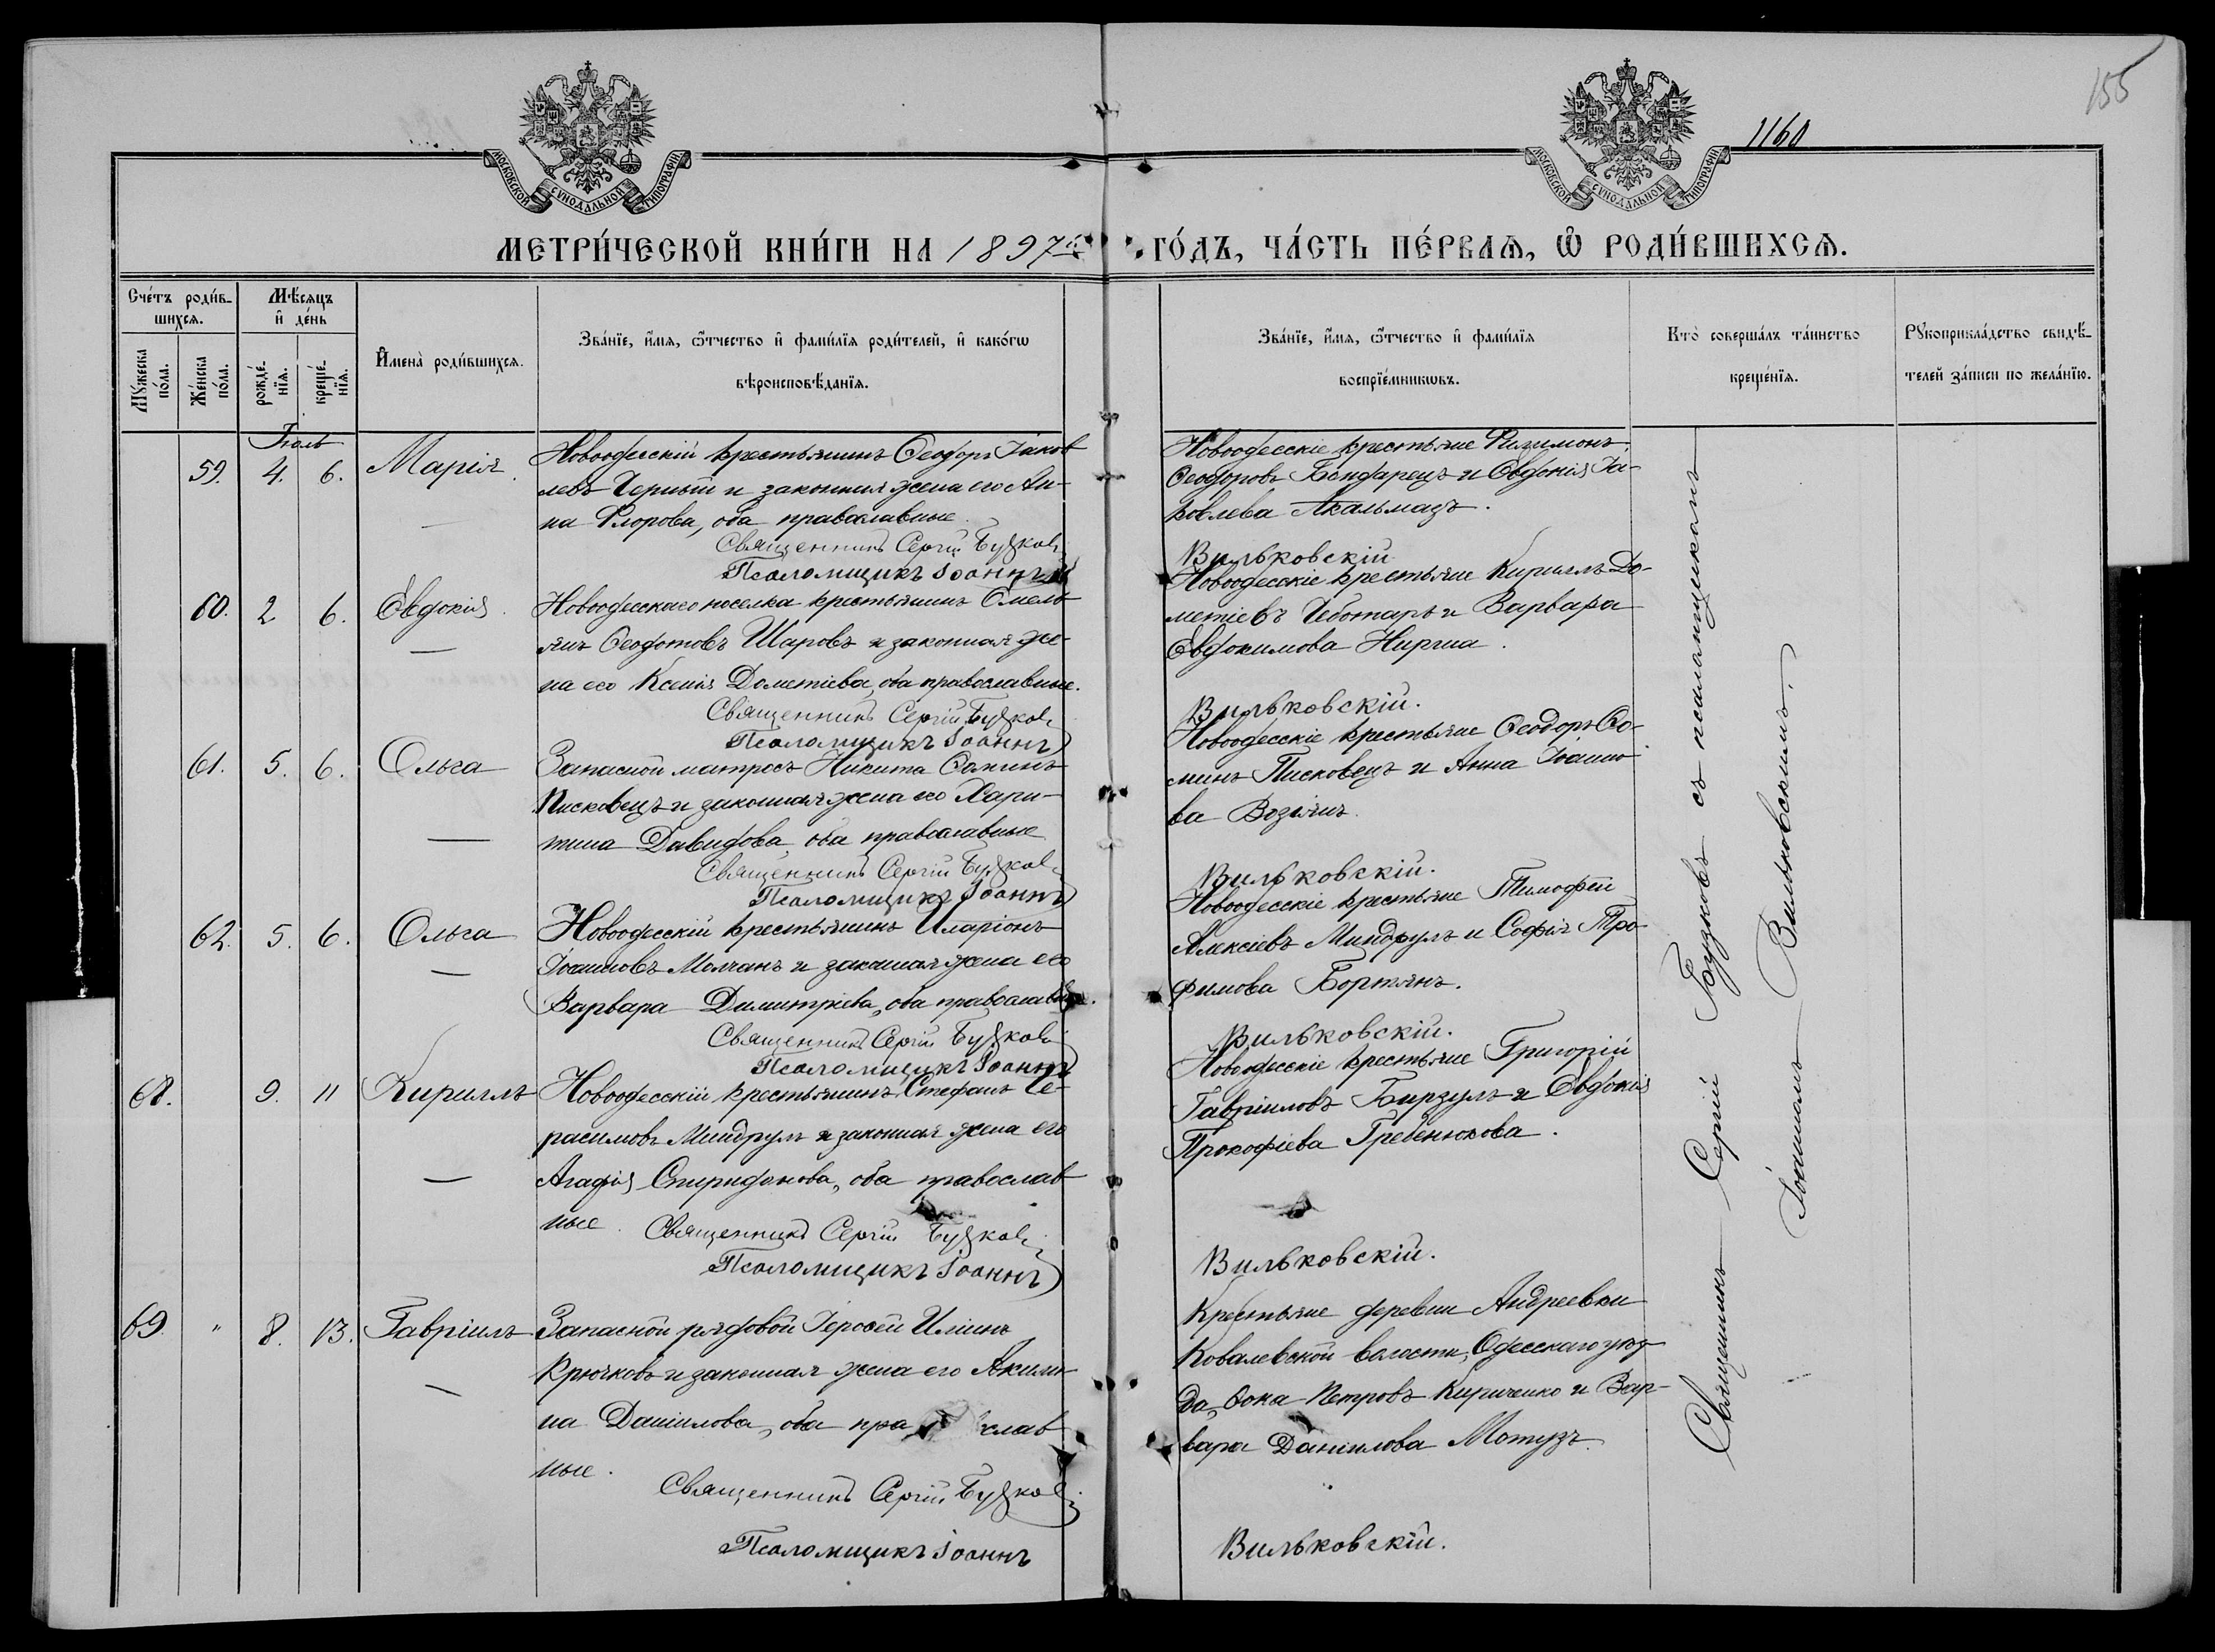 155
1160
МОСКОВСКОЙ СѴНОДАЛЬНОЙ ТИПОГРАФІИ
МОСКОВСКОЙ СѴНОДАЛЬНОЙ ТИПОГРАФІИ
МЕТРИ́ЧЕСКОЙ КНИ́ГИ НА 1897й ГО́ДЪ, ЧА́СТЬ ПЕ́РВАѦ, Ѡ҆ РОДИ́ВШИХСѦ.
Сче́тъ роди́в-
шихсѧ.
Мѣ́сѧцъ
и҆ де́нь
Мꙋ́жеска по́ла.
Же́нска по́ла.
рожде́-
нїѧ.
креще́-
нїѧ.
И҆мена̀ роди́вшихсѧ.
Зва́нїе, и҆́мѧ, ѻ҆́тчество и҆ фами́лїѧ роди́телей, и҆ како́гѡ
вѣроисповѣ́данїѧ.
Зва́нїе, и҆́мѧ, ѻ҆́тчество и҆ фами́лїѧ
воспрїе́мникѡвъ.
Кто̀ соверша́лъ та́инство
креще́нїѧ.
Рꙋкоприкла́дство свидѣ́-
телей за́писи по жела́нїю.
Іюль
59. 4. 6. Марія
Новоодесскій крестьянинъ Ѳеодоръ Іаков
левъ Черный и законная жена его Ан-
на Флорова, оба православные.
Священникъ Сергій Бузковъ
Псаломщикъ Іоаннъ
Новоодесскіе крестьяне Филимонъ
Ѳеодоровъ Бондарецъ и Евдокія Іа-
ковлева Акальмазъ.
Вильковскій
60. 2 6. Евдокія
Новоодесскаго поселка крестьянинъ Омель
янъ Ѳеодотовъ Шаровъ и законная же-
на его Ксенія Дометіева, оба православные.
Священникъ Сергій Бузковъ
Псаломщикъ Іоаннъ
Новоодесскіе крестьяне Кириллъ До-
метіевъ Чеботарь и Варвара
Евдокимова Нирша.
Вильковскій.
61. 5. 6. Ольга
Запасной матросъ Никита Ѳоминъ
Писковецъ и законная жена его Хари-
тина Давидова, оба православные
Священникъ Сергій Бузковъ
Псаломщикъ Іоаннъ
Новоодесскіе крестьяне Ѳеодоръ Ѳо-
минъ Писковецъ и Анна Іоанно
ва Возіянъ.
Вильковскій.
62. 5. 6. Ольга
Новоодесскій крестьянинъ Иларіонъ
Іоанновъ Молчанъ и законная жена его
Варвара Димитріева, оба православные.
Священникъ Сергій Бузковъ
Псаломщикъ Іоаннъ
Новоодесскіе крестьяне Тимофей
Алексіевъ Миндрулъ и Софія Тро-
фимова Бортянъ.
Вильковскій.
68. 9. 11 Кириллъ
Новоодесскій крестьянинъ Стефанъ Ге-
расимовъ Миндрулъ и законная жена его
Агафія Спиридонова, оба православ
ные.
Священникъ Сергій Бузковъ
Псаломщикъ Іоаннъ
Новоодесскіе крестьяне Григорій
Гавріиловъ Бирзулъ и Евдокія
Прокофіева Гребенюкова.
Вильковскій.
69 " 8. 13. Гавріилъ
Запасной рядовой Іерофей Иліинъ
Крючковъ и законная жена его Акили-
на Даніилова, оба пра слав
ные.
Священникъ Сергій Бузковъ
Псаломщикъ Іоаннъ
Крестьяне деревни Андреевки
Ковалевской волости, Одесскаго уѣз-
да, Ѳока Петровъ Кириченко и Вар-
вара Даніилова Мотузъ.
Вильковскій.
Священникъ Сергій Бузковъ съ псаломщикомъ
Іоанномъ Вильковскимъ.